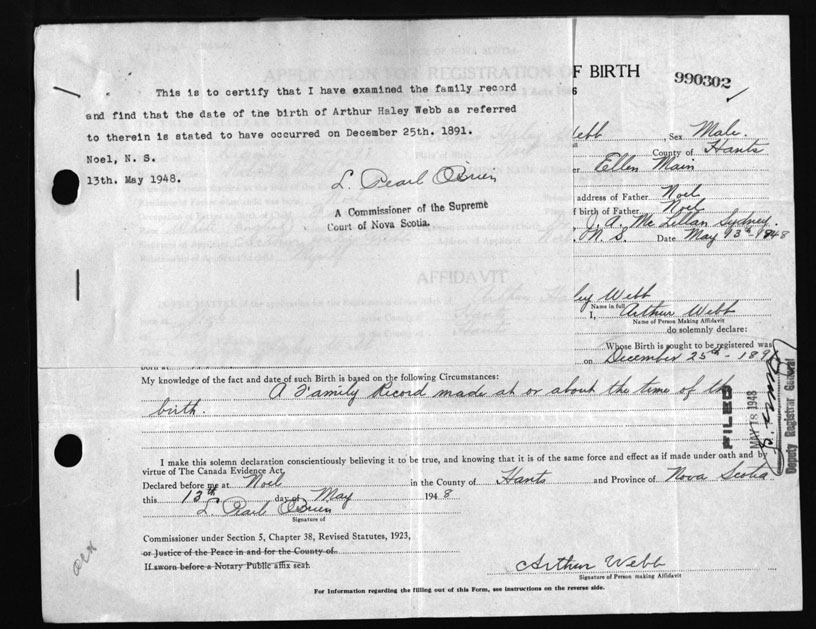 This is to certify that I have examined the family record
and find that the date of the birth of Arthur Haley Webb as referred
to therein is stated to have occurred on December 25th. 1891.
Noel, N. S.
13th. May 1948.
L. Pearl O'Brien
A Commissioner of the Supreme
Court of Nova Scotia.
F BIRTH
990302
6
Webb, Sex Male.
County of Hants
er Ellen Main
address of Father Noel
f birth of Father Noel
J. A. McLellan Sydney.
N. S. Date May 13th - 1948
AFFIDAVIT
ley Webb
Name in full
I, Arthur Webb
Name of Person Making Affidavit
do solemnly declare:
Whose Birth is sought to be registered was
on December 25th - 189
My knowledge of the fact and date of such Birth is based on the following Circumstances:
A Family Record made at or about the time of th
birth.
FILED
MAY 18 1948
Deputy Registrar General
I make this solemn declaration conscientiously believing it to be true, and knowing that it is of the same force and effect as if made under oath and by
virtue of The Canada Evidence Act.
Declared before me at Noel in the County of Hants and Province of Nova Scotia
this 13th day of May 1948
L. Pearl O'Brien
Signature of
Commissioner under Section 5, Chapter 38, Revised Statutes, 1923,
or Justice of the Peace in and for the County of
If sworn before a Notary Public affix seal.
Arthur Webb
Signature of Person making Affidavit
For Information regarding the filling out of this Form, see instructions on the reverse side.